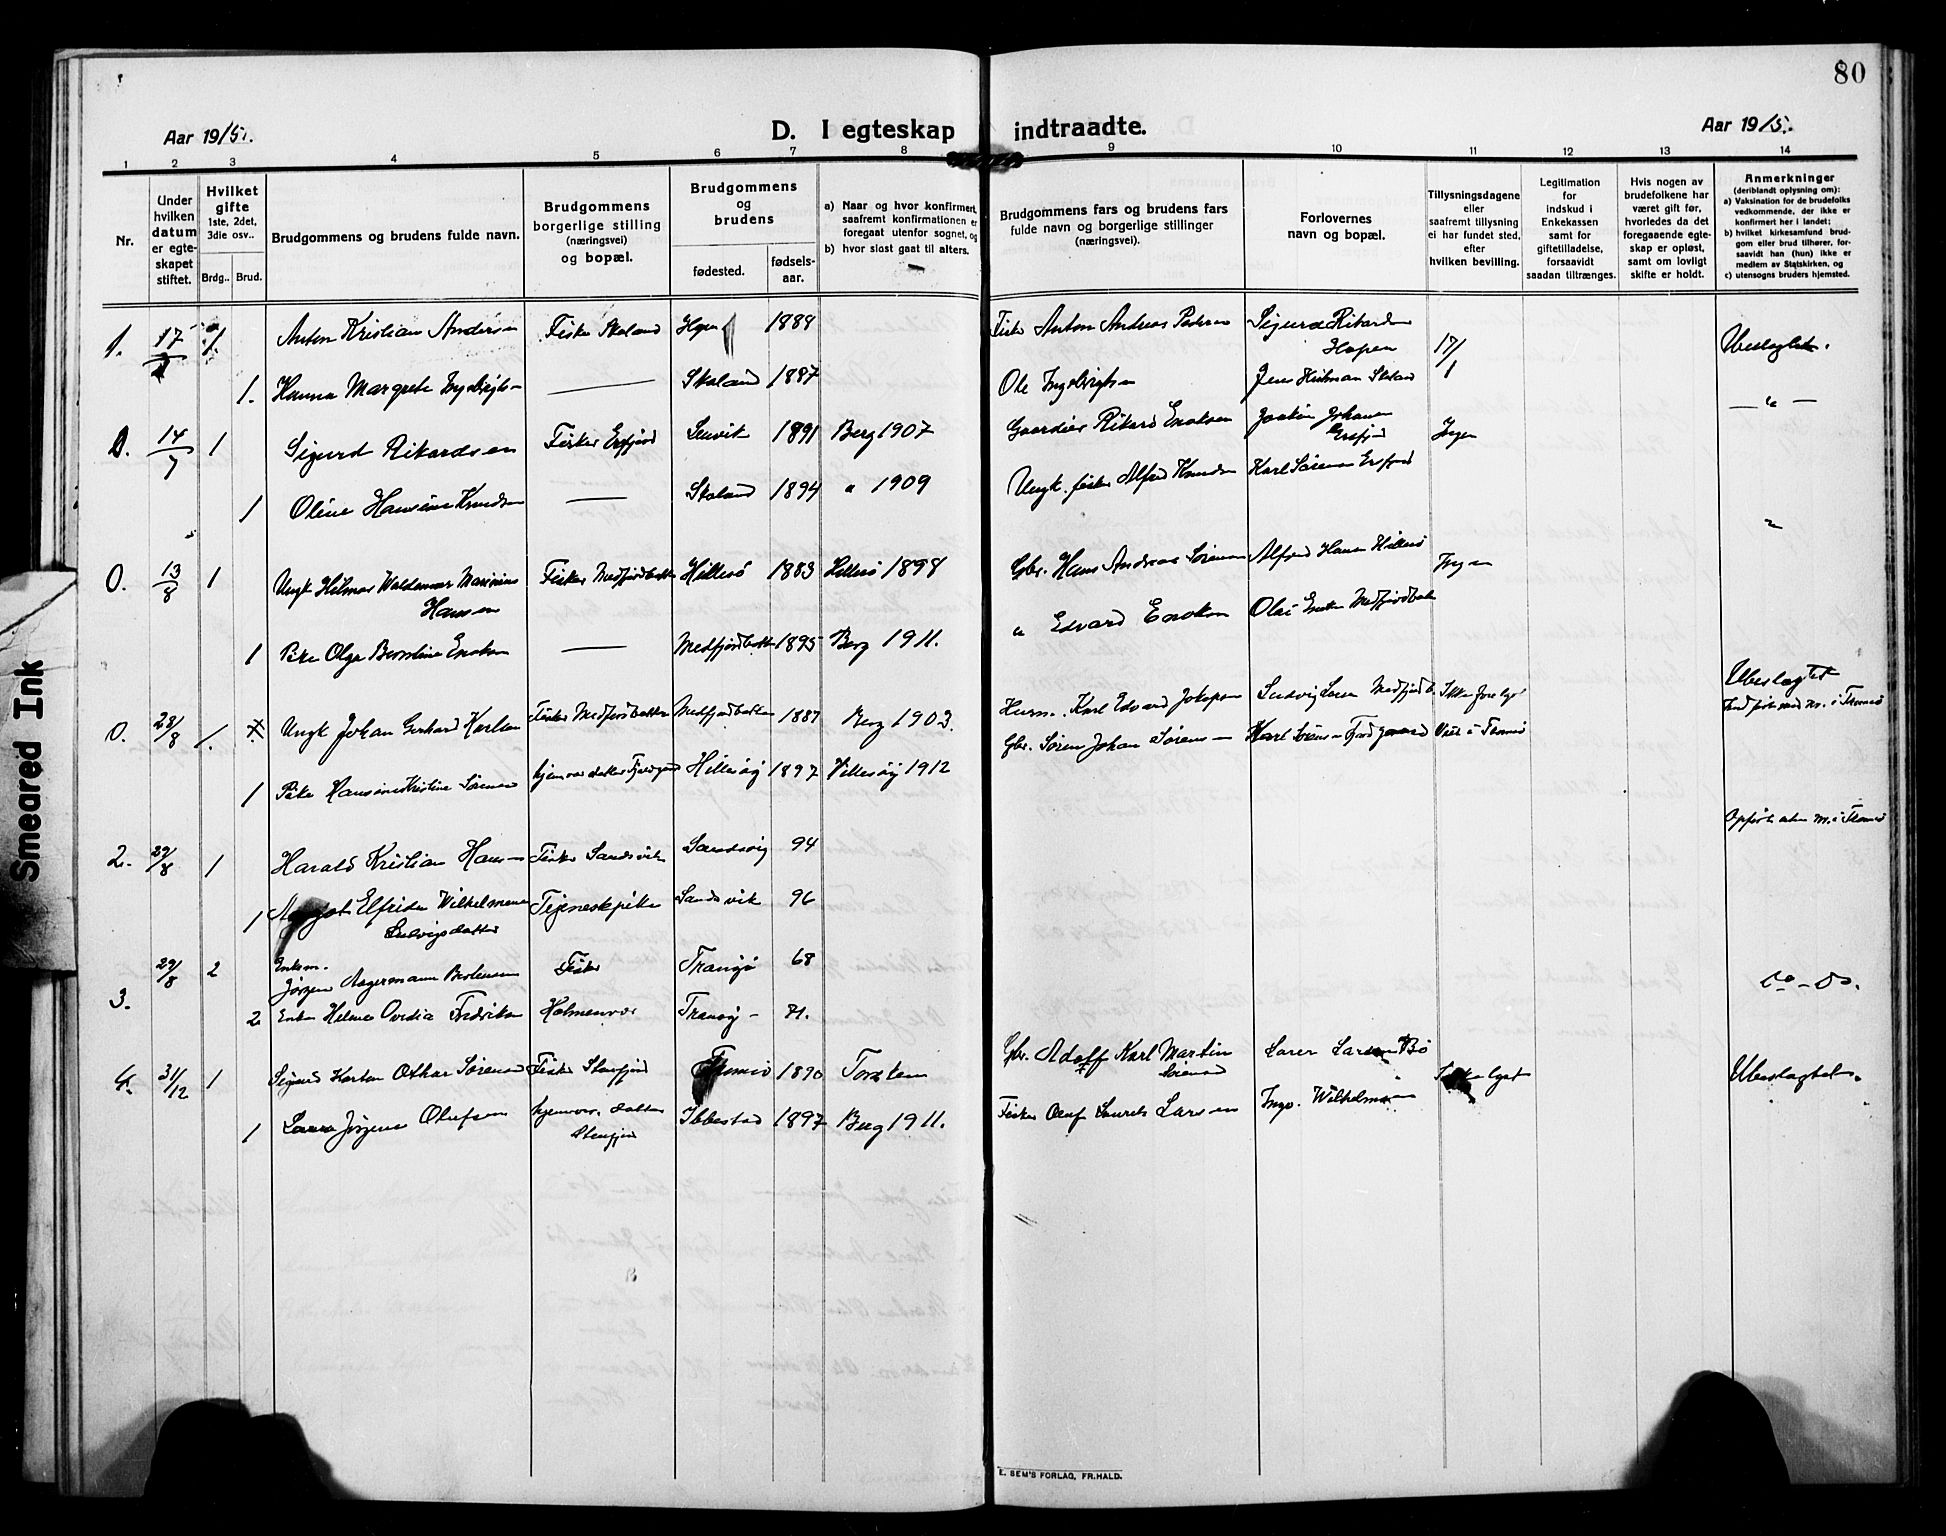 80
Aar 1915.
D. I egteskap indtraadte.
Aar 1915.
1 2 3 4 5 6 7 8 9 10 11 12 13 14
Nr.
Under hvilken datum er egteskapet stiftet.
Hvilket gifte 1ste, 2det, 3die osv..
Brdg..
Brud.
Brudgommens og brudens fulde navn.
Brudgommens borgerlige stilling (næringsvei) og bopæl.
Brudgommens og brudens
fødested.
fødsels-aar.
a) Naar og hvor konfirmert, saafremt konfirmationen er foregaat utenfor sognet, og
b) hvor sidst gaat til alters.
Brudgommens fars og brudens fars fulde navn og borgerlige stillinger (næringsvei).
Forlovernes navn og bopæl.
Tillysningsdagene eller saafremt tillysning ei har fundet sted, efter hvilken bevilling.
Legitimation for indskud i Enkekassen samt for giftetilladelse, forsaavidt saadan tiltrænges.
Hvis nogen av brudefolkene har været gift før, hvorledes da det foregaaende egteskap er opløst, samt om lovligt skifte er holdt.
Anmerkninger (deriblandt oplysning om):
a) Vaksination for de brudefolks vedkommende, der ikke er konfirmert her i landet;
b) hvilket kirkesamfund brudgom eller brud tilhører, forsaavidt han (hun) ikke er medlem av Statskirken, og
c) utensogns bruders hjemsted.
1. 17 1. Anton Kristian Andersen Fisker Skaland 1888 Fisker Anton Andreas Pedersen Sigurd Rikards Hopen 17/1 Ubeslegtet.
1. Hanna Margrete Ingebrigts— —— Skaland 1887 Ole Ingebrigtsen Jens Hilman Skaland — " —
0. 14/7 1 Sigurd Rikardsen Fisker Ersfjord Senvik 1891 Berg 1907 Gaardbr Rikard Enoksen Joakim Johansen Ersfjord Ingen
1 Oline Hansine Knudsen —— Skaland 1894 " 1909 Ungk. fisker Alfred Knudsen Karl Sørensen Ersfjord "
0. 13/8 1 Ungk Hilmar Waldemar Marinius Hansen Fisker Medfjordbotn Hillesö 1883 Hillesö 1898 Gbr. Hans Andreas Sørensen Alfred Hansen Hillesö Ingen
1 Pike Olga Berntine Enoksen —— Medfjordbotn 1895 Berg 1911. " Edvard Enoksen Olai Enoksen Medfjordbotn
Ubeslegtet
0. 28/8 1. Ungk Johan Gerhard Karlsen Fisker Medfjordbotten Medfjordbotten 1887 Berg 1903. Husm. Karl Edvard Jakopsen Ludvig Larsen Medfjordb.
1 Pike Hansine Kristine Sørensen hjemvær. datter 1897 Hillesöy 1912 Gbr. Søren Johan Sørensen Karl Sörensen
2. 29/8 1 Harald Kristian Hansen Fisker Sandsvik Sandsvig 94
1 Elfrida Wilhelmine Ludvigsdatter Tjenestepike Sandsvik 96
3. 29/8 2 Enkem. Jørgen Aagermann Berntsen Fisker Tranøy 68 do - do.
2 Enke Helmer Ovidia Fredriksen Holmenvær Tranøy - 71.
4. 31/12 1 Sigurd Karton Othar Sørensen Fisker Stenfjord Tromsö 1890 Torsken Gbr. Adolf Karl Martin Sörensen Larer Larsen Bö Ubeslegtet.
1 Laura Jørgine Olufsen hjemvær. datter Stenfjord Ibbestad 1897 Berg 1911. Fisker Oluf Laurits Larsen Ingv. Wilhelmsen
E. SEM'S FORLAG, FR.HALD.
Smeared Ink